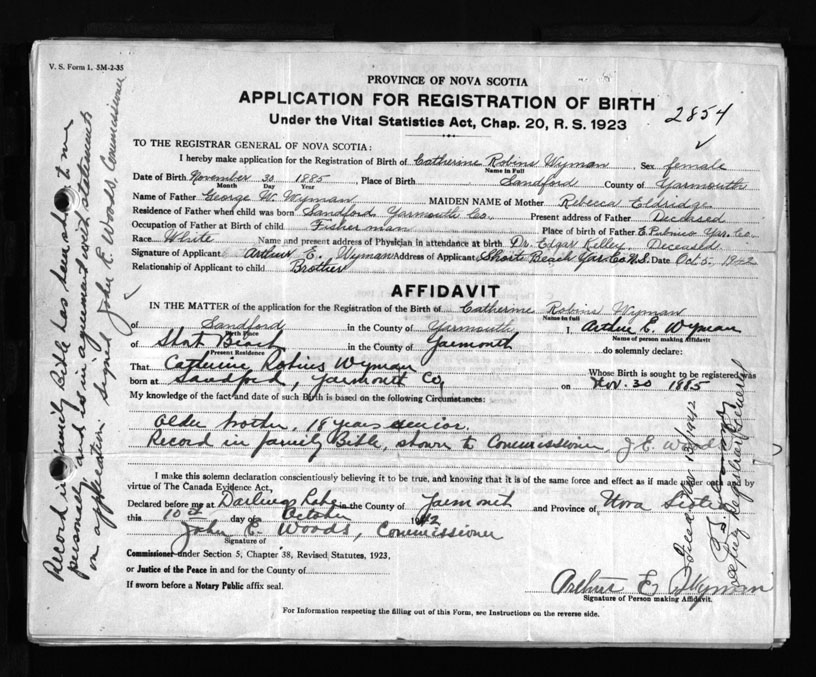 V. S. Form 1. 5M-2-35
PROVINCE OF NOVA SCOTIA
APPLICATION FOR REGISTRATION OF BIRTH
2854
Under the Vital Statistics Act, Chap. 20, R. S. 1923
TO THE REGISTRAR GENERAL OF NOVA SCOTIA:
I hereby make application for the Registration of Birth of Catherine Robins Wyman Sex female
Name in Full
Date of Birth November 30 1885 Place of Birth Sandford County of Yarmouth
Month Day Year
Name of Father George W. Wyman MAIDEN NAME of Mother Rebecca Eldridge
Residence of Father when child was born Sandford Yarmouth Co. Present address of Father Deceased
Occupation of Father at Birth of Child Fisherman Place of birth of Father E. Pubnico Yar. Co.
Race White Name and present address of Physician in attendance at birth Dr. Edgar Kelley. Deceased
Signature of Applicant Arthur E. Wyman Address of Applicant Short Beach Yar. Co. N.S. Date Oct 5, 1942
Relationship of Applicant to child Brother
AFFIDAVIT
IN THE MATTER of the application for the Registration of the Birth of Catherine Robins Wyman
Name in full
of Sandford in the County of Yarmouth I, Arthur E. Wyman
Birth Place
Name of person making Affidavit
of Short Beach in the County of Yarmouth do solemnly declare:
Present Residence
That Catherine Robins Wyman Whose Birth is sought to be registered was
born at Sandford, Yarmouth Co, on Nov. 30 1885
My knowledge of the fact and date of such Birth is based on the following Circumstances:
Older brother, 18 years senior.
Record in family Bible, shown to Commissioner, J. E. Woods
I make this solemn declaration conscientiously believing it to be true, and knowing that it is of the same force and effect as if made under oath and by
virtue of The Canada Evidence Act,
Declared before me at Darlings Lake in the County of Yarmouth and Province of Nova Scotia
this 10th day of October 1942
John E. Woods, Commissioner
Signature of
Commissioner under Section 5, Chapter 38, Revised Statutes, 1923,
or Justice of the Peace in and for the County of
If sworn before a Notary Public affix seal.
Arthur E. Wyman
Signature of Person making Affidavit.
For Information respecting the filling out of this Form, see Instructions on the reverse side.
Record in family Bible has been shown to me
personally and is in agreement with statements
on application. Signed John E. Woods Commissioner
1942
Deputy Registrar General